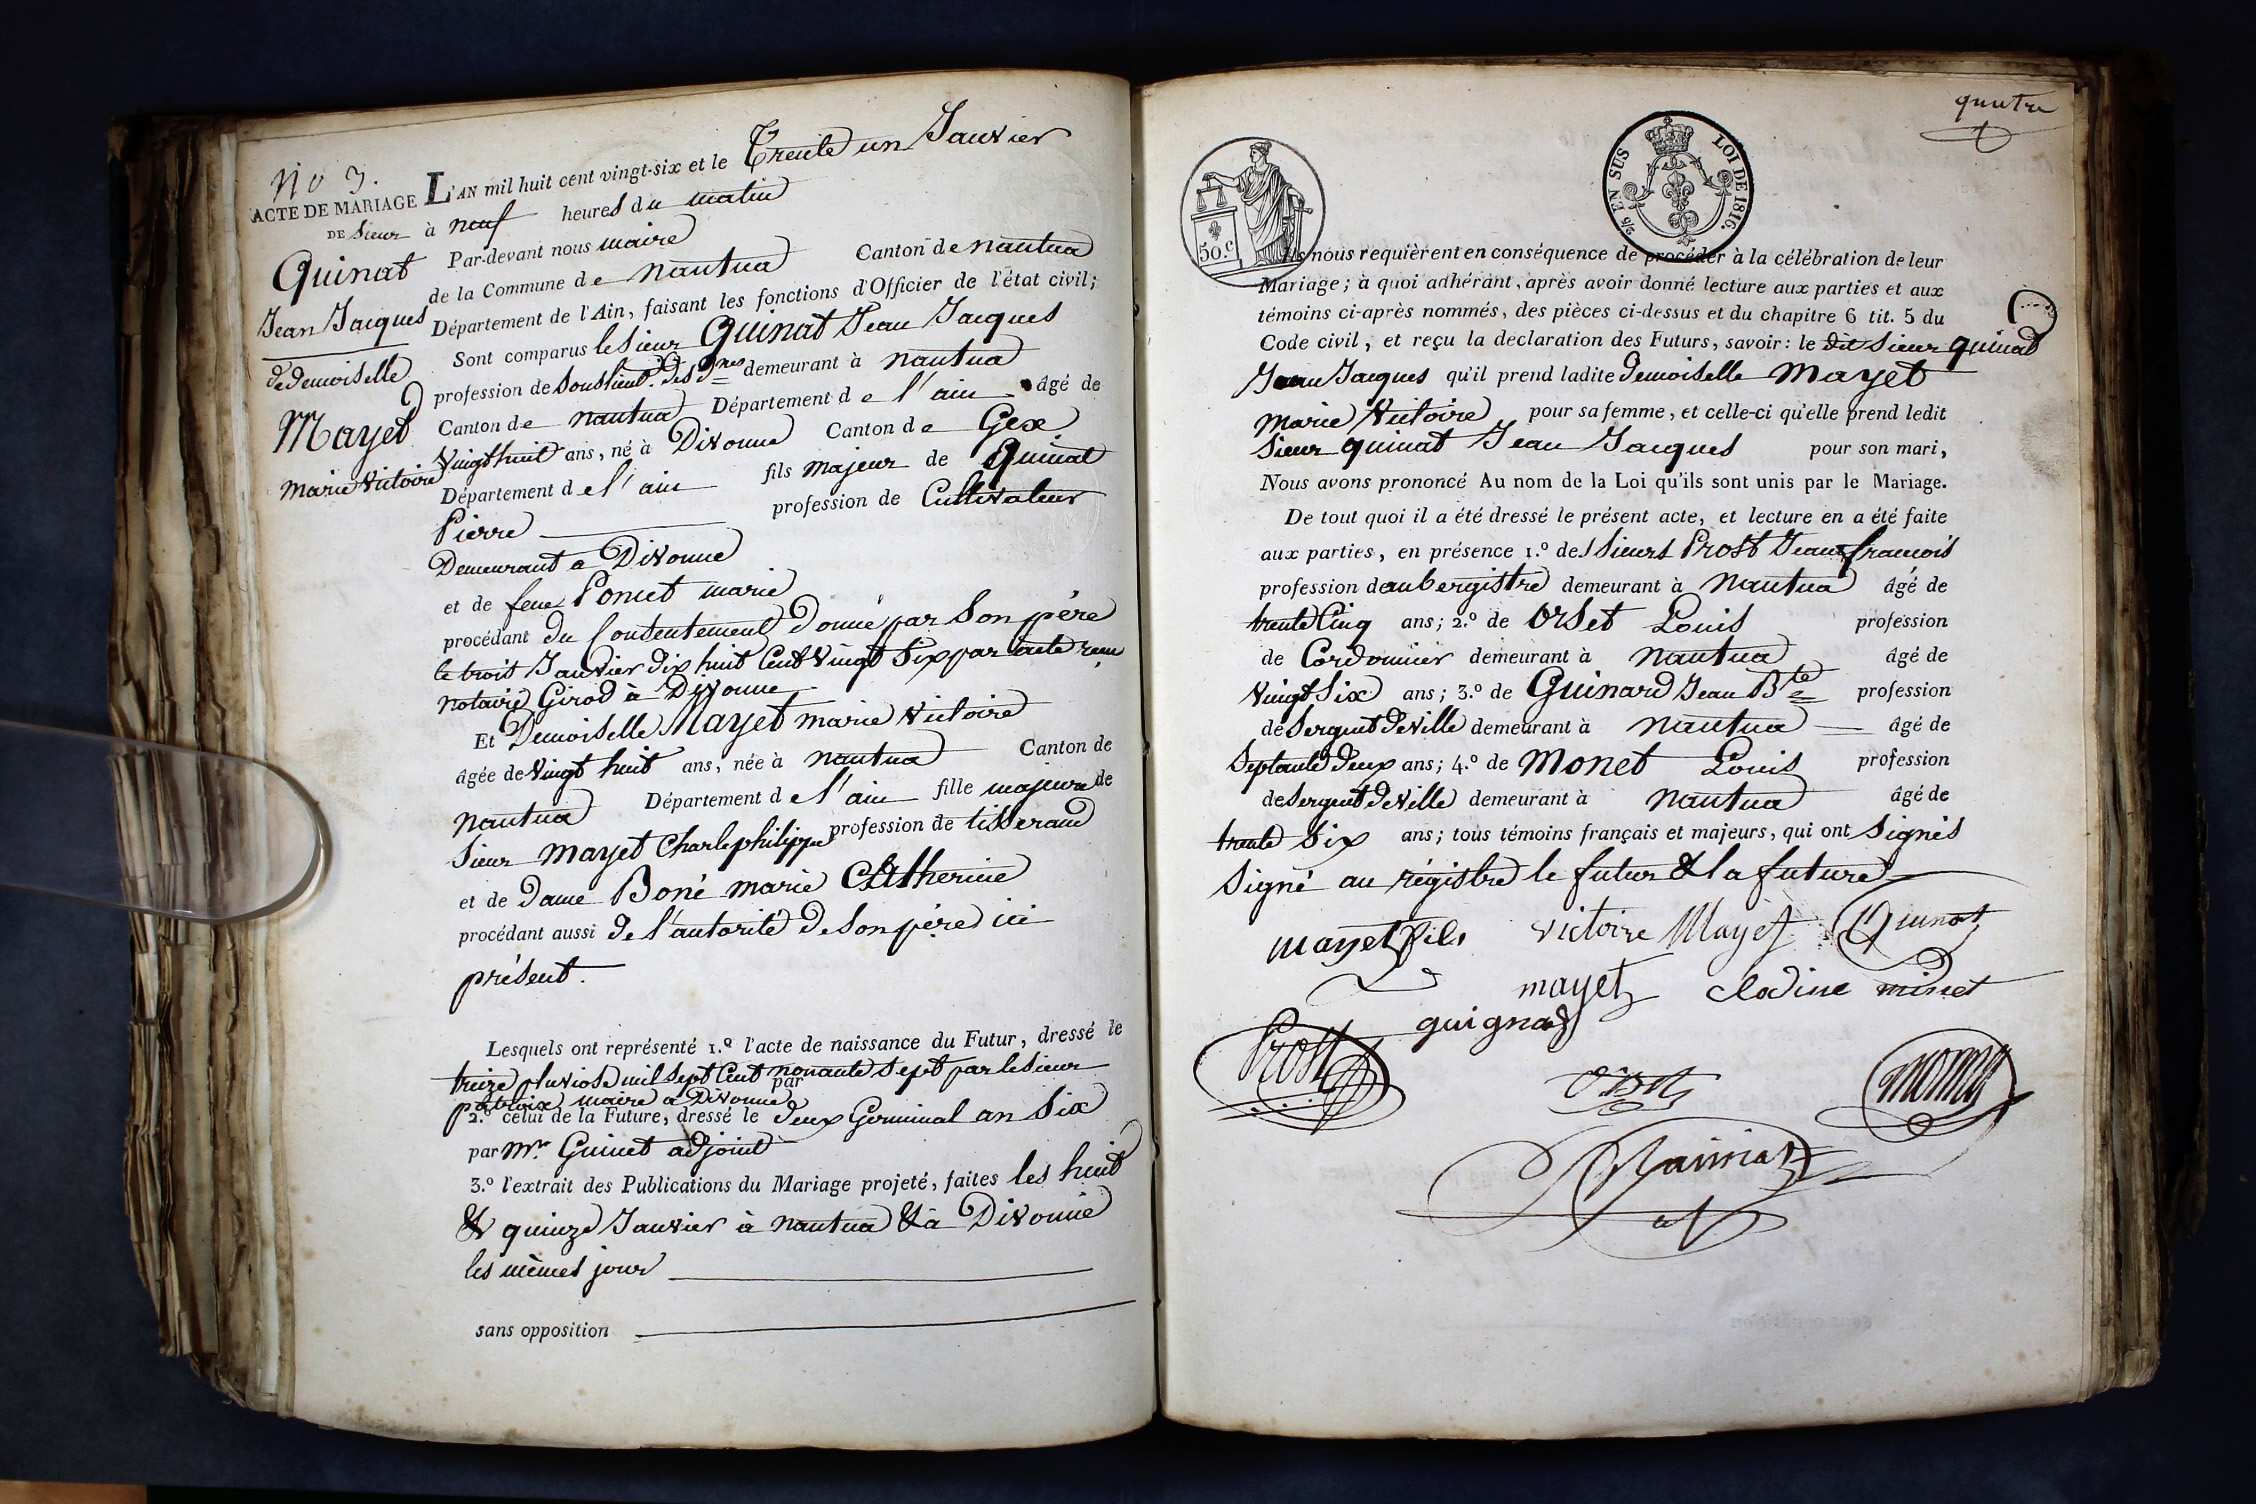 No 3.
ACTE DE MARIAGE
DE Sieur
Quinat
Jean Jacques
& demoiselle
Mayet
Marie Victoire
L'AN mil huit cent vingt-six et le Trente un Janvier
à neuf heures du matin
Par-devant nous maire
de la Commune de nantua Canton de nantua
Département de l'Ain, faisant les fonctions d'Officier de l'état civil;
Sont comparus le sieur Quinat Jean Jacques
profession de Souslieut. des demeurant à nantua
Canton de nantua Département de l'ain âgé de
Vingt huit ans, né à Divonne Canton de Gex
Département de l'ain fils majeur de Quinat
Pierre profession de Cultivateur
Demeurant a Divonne
et de feue Poncet marie
procédant du Consentement donné par Son père
le trois Janvier dix huit Cent Vingt Six par acte reçu
notaire Girod à Divonne
Et Demoiselle Mayet marie Victoire
âgée de Vingt huit ans, née à nantua Canton de
nantua Département de l'ain fille majeure de
Sieur Mayet Charle philippe profession de tisserand
et de Dame Boné marie Catherine
procédant aussi de l'autorité de Son père ici
présent.
Lesquels ont représenté 1.º l'acte de naissance du Futur, dressé le
treize pluviose mil sept Cent nonante sept par le sieur
par
maire à Divonne
2.º celui de la Future, dressé le deux Germinal an Six
par Mr. Guinet adjoint
3.º l'extrait des Publications du Mariage projeté, faites les huit
& quinze Janvier à nantua & à Divonne
les mêmes jour
sans opposition
quatre
50.c
2/5 EN SUS LOI DE 1816.
Ils nous requièrent en conséquence de procéder à la célébration de leur
Mariage; à quoi adhérant, après avoir donné lecture aux parties et aux
témoins ci-après nommés, des pièces ci-dessus et du chapitre 6 tit. 5 du
Code civil, et reçu la déclaration des Futurs, savoir: le dit Sieur quinat
Jean Jacques qu'il prend ladite demoiselle Mayet
Marie Victoire pour sa femme, et celle-ci qu'elle prend ledit
Sieur quinat Jean Jacques pour son mari,
Nous avons prononcé Au nom de la Loi qu'ils sont unis par le Mariage.
De tout quoi il a été dressé le présent acte, et lecture en a été faite
aux parties, en présence 1.º des Sieurs Prost Jean françois
profession d'aubergistre demeurant à Nantua âgé de
trente Cinq ans; 2.º de Orset Louis profession
de Cordonnier demeurant à Nantua âgé de
Vingt Six ans; 3.º de Guinard Jean Bte profession
de Sergent de Ville demeurant à Nantua âgé de
Septante deux ans; 4.º de Monet Louis profession
de Sergent de Ville demeurant à Nantua âgé de
trente Six ans; tous témoins français et majeurs, qui ont Signés
Signé au régistre le futur & la future
mayet fils victoire Mayet Quinat
mayet clodine minet
guignad
Prost
Orset
monet